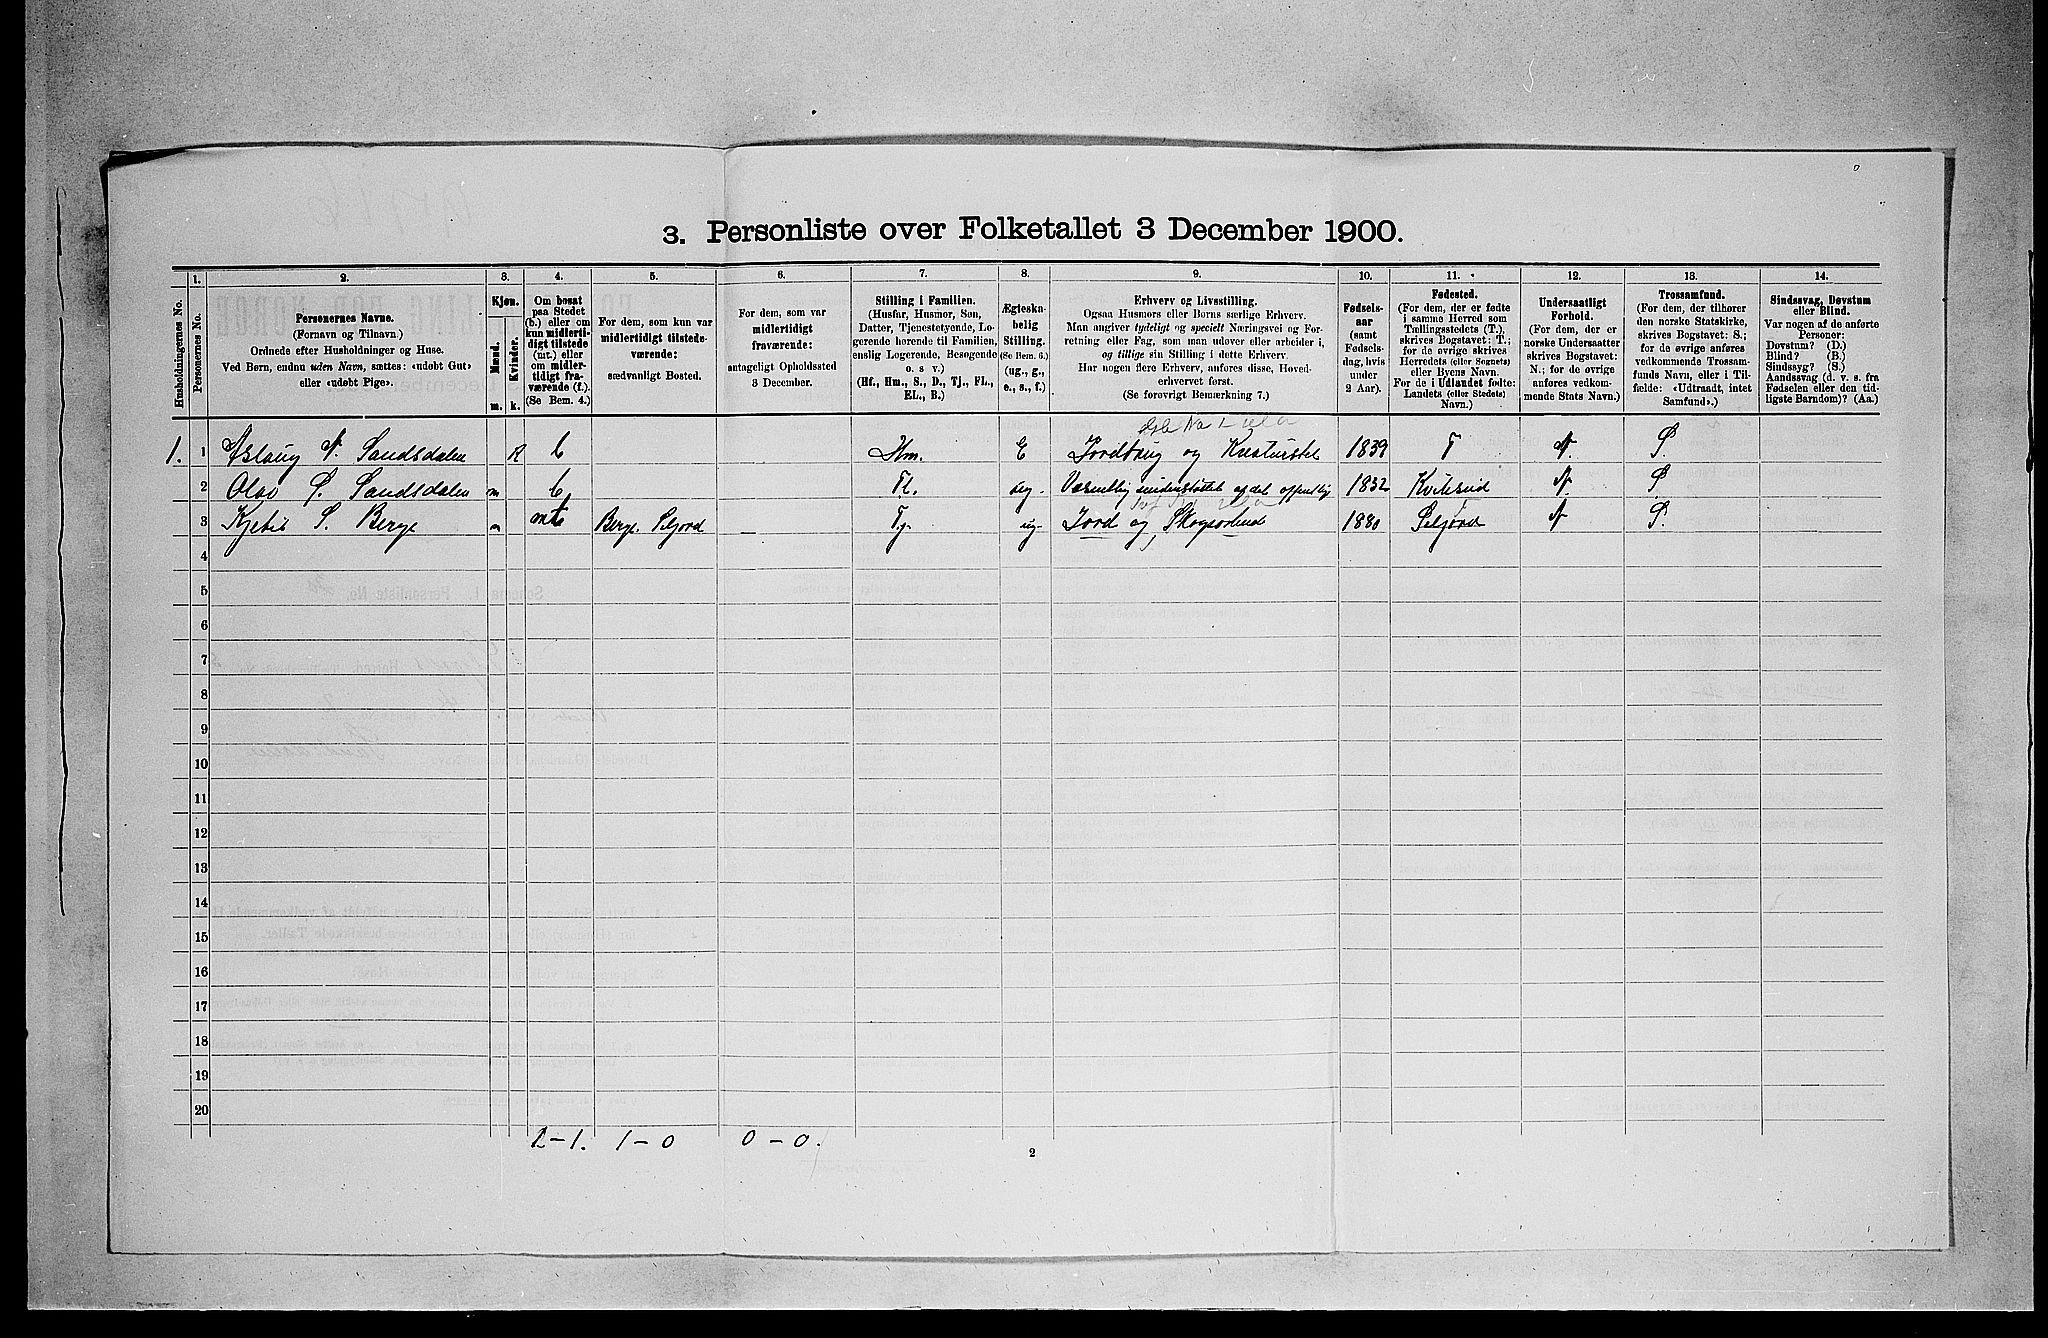 3. Personliste over Folketallet 3 December 1900.
1. 2. 3. 4. 5. 6. 7. 8. 9. 10. 11. 12. 13. 14.
Husholdningernes No.
Personernes No.
Personernes Navne.
(Fornavn og Tilnavn.)
Ordnede efter Husholdninger og Huse.
Ved Børn, endnu uden Navn, sættes: «udøbt Gut»
eller «udøbt Pige».
Kjøn.
Mænd.
Kvinder.
m. k.
Om bosat
paa Stedet
(b.) eller om
kun midlerti-
digt tilstede
(mt.) eller
om midler-
tidigt fra-
værende (f.)
(Se Bem. 4.)
For dem, som kun var
midlertidigt tilstede-
værende:
sædvanligt Bosted.
For dem, som var
midlertidigt
fraværende:
antageligt Opholdssted
3 December.
Stilling i Familien.
(Husfar, Husmor, Søn,
Datter, Tjenestetyende, Lo-
gerende hørende til Familien,
enslig Logerende, Besøgende
o. s. v.)
(Hf., Hm., S., D., Tj., FL.,
EL., B.)
Ægteska-
belig
Stilling.
(Se Bem. 6.)
(ug., g.,
e., s., f.)
Erhverv og Livsstilling.
Ogsaa Husmors eller Børns særlige Erhverv.
Man angiver tydeligt og specielt Næringsvei og For-
retning eller Fag, som man udøver eller arbeider i,
og tillige sin Stilling i dette Erhverv.
Har nogen flere Erhverv, anføres disse, Hoved-
erhvervet først.
(Se forøvrigt Bemærkning 7.)
Fødsels-
aar
(samt
Fødsels-
dag, hvis
under
2 Aar).
Fødested.
(For dem, der er fødte
i samme Herred som
Tællingsstedets (T.),
skrives Bogstavet: T.;
for de øvrige skrives
Herredets (eller Sognets)
eller Byens Navn.
For de i Udlandet fødte:
Landets (eller Stedets)
Navn.)
Undersaatligt
Forhold.
(For dem, der er
norske Undersaatter
skrives Bogstavet:
N.; for de øvrige
anføres vedkom-
mende Stats Navn.)
Trossamfund.
(For dem, der tilhører
den norske Statskirke,
skrives Bogstavet: S.;
for de øvrige anføres
vedkommende Trossam-
funds Navn, eller i Til-
fælde: «Udtraadt, intet
Samfund».)
Sindssvag, Døvstum
eller Blind.
Var nogen af de anførte
Personer:
Døvstum? (D.)
Blind? (B.)
Sindssyg? (S.)
Aandssvag (d. v. s. fra
Fødselen eller den tid-
ligste Barndom)? (Aa.)
1. 1 Aslaug N. Sandsdalen K b Hm. E Jordbrug og Kreaturstel 1839 T N. S.
2 Olav S. Sandsdalen m b FL. ug. 1832 Kviteseid N. S
3 Kjetil S. Berge m mt Berge Seljord — Tj. ug. Jord og Skogsarbeid 1880 Seljord N S.
4
5
6
7
8
9
10
11
12
13
14
15
16
17
18
19
20
2-1. 1-0 0-0.
2